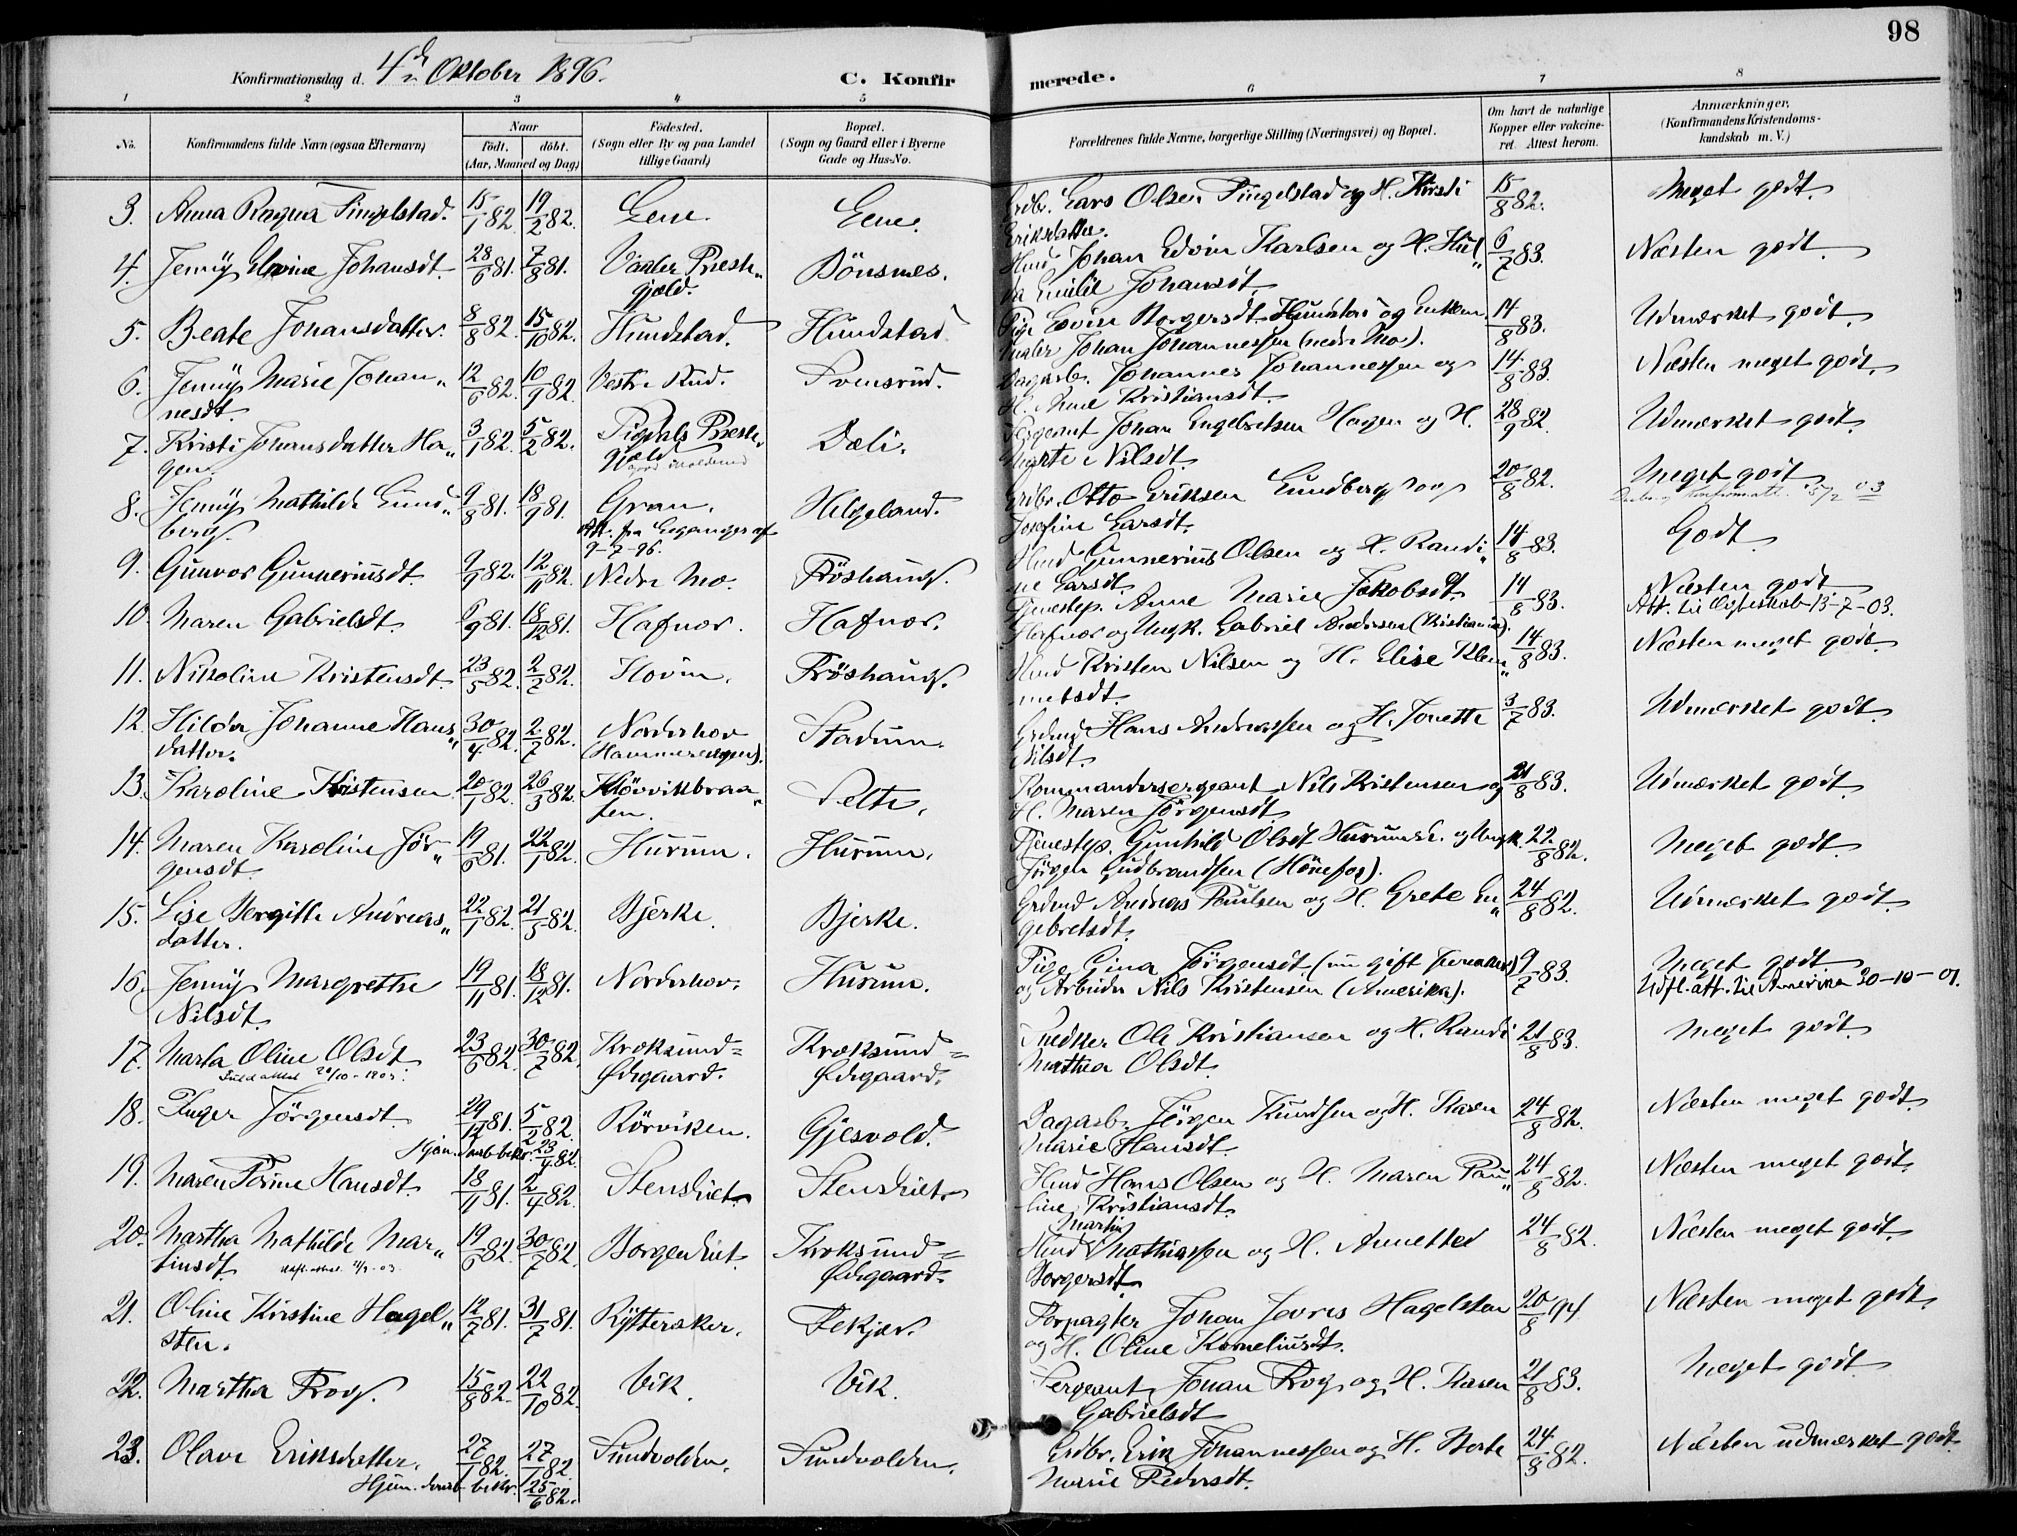 98
Konfirmationsdag d. 4de Oktober 1896.
C. Konfirmerede.
1 2 3 4 5 6 7 8
No. Konfirmandens fulde Navn (ogsaa Efternavn) Naar födt. döbt. (Aar, Maaned og Dag) Födested. (Sogn eller By og paa Landet tillige Gaard) Bopæl. (Sogn og Gaard eller i Byerne Gade og Hus-No. Forældrenes fulde Navne, borgerlige Stilling (Næringsvei) og Bopæl. Om havt de naturlige Kopper eller vakcineret. Attest herom. Anmærkninger. (Konfirmandens Kristendomskundskab m. V.)
3. Anna Ragna Fingelstad. 15/1 82. 19/2 82. Lene. Lene. Grdbr. Lars Olsen Fingelstad og H. Kirsti 15/8 82. Meget godt.
Eriksdatter.
4. Jenny Elvine Johansdt. 28/6 81. 7/8 81. Vaaler Præste„ Bönsnes. Hmd Johan Edvin Karlsen og H. Hul„ 6/7 83. Næsten godt.
gjeld. da Emilie Johansdt.
5. Beate Johansdatter. 8/8 82. 15/10 82. Hundstad. Hundstad. Pige Edvin Borgersdt. Hundstad og Enkem. 14/8 83. Udmærket godt.
Maler Johan Johannessen (nedre Mo).
6. Jenny Marie Johan„ 12/6 82. 10/9 82. Vestre Rud. Svensrud. Dagarb. Johannes Johannessen og 14/8 83. Næsten meget godt.
nesdt. H. Anne Kristiansdt.
7. Kristi Johansdatter Ha„ 3/1 82. 5/2 82. Sigdals Præste„ Dæli. Sergeant Johan Engebretsen Hagen og H. 28/9 82. Udmærket godt.
gen. gjeld Marte Nilsdt.
8. Jenny Mathilde Lund„ 9/8 81. 18/9 81. Gran. Helgeland. Grdbr. Otto Eriksen Lundberg og 20/8 82. Meget godt.
berg. Att. fra Sogneprest af Josefine Larsdt.
9-7-96.
9. Gunvor Gunneriusdt. 9/9 82. 12/11 82. Nedre Mo. Fröshaug. Hmd Gunnerius Olsen og H. Randi„ 14/8 83. Godt.
ne Larsdt.
10. Maren Gabrielsdt. 6/9 81. 18/12 81. Hafnor. Hafnor. Tjenestep. Anne Marie Jakobsdt. 14/8 83. Næsten godt.
Hafnor og Ungk. Gabriel Andersen (Kristiania). Att. til Ægteskab 13-7-03.
11. Nikoline Kristensdt. 23/5 82. 2/7 82. Hovin. Fröshaug. Hmd Kristen Nilsen og H. Elise Klem„ 14/8 83. Næsten meget godt.
metsdt.
12. Hilda Johanne Hans„ 30/4 82. 2/7 82. Norderhov Stadum. Grdmd Hans Andreassen og H. Jonette 3/7 83. Udmærket godt.
datter. (Hammerengen). Nilsdt.
13. Karoline Kristensen 20/1 82. 26/3 82. Klövvikbraa„ Selte. Kommandersergeant Nils Kristensen og 21/8 83. Udmærket godt.
ten. H. Maren Jörgensdt.
14. Maren Karoline Jör„ 19/6 81. 22/1 82. Hurum. Hurum. Tjenestep. Gunhild Olsdt Hurum og Ungk. 22/8 82. Meget godt.
gensdt. Jörgen Gudbrandsen (Hönefos).
15. Lise Bergitte Andreas„ 22/1 82. 21/5 82. Bjerke. Bjerke. Grdmd Andreas Paulsen og H. Grete En„ 24/8 82. Udmærket godt.
datter. gebretsdt.
16. Jenny Margrethe 19/11 81. 18/12 81. Norderhov. Hurum. Pige Lina Jörgensdt (nu gift 9/7 83. Meget godt.
Nilsdt. og Arbeider Nils Kristensen (Amerika). Udfl. att. til Amerika 30-10-01.
17. Marta Oline Olsdt 23/6 82. 30/7 82. Kroksund= Kroksund= Snedker Ole Kristiansen og H. Randi 21/8 83. Meget godt.
Ødegaard. Ødegaard. Mathea Olsdt.
18. Inger Jörgensdt 29/12 81. 5/2 82. Rörviken. Gjesvold. Dagarb. Jörgen Knudsen og H. Karen 24/8 82. Næsten meget godt.
Hjem. daab bekr. 23/4 82. Marie Hansdt.
19. Maren Perine Hansdt 18/11 81. 2/4 82. Stensriet. Stensriet. Hmd Hans Olsen og H. Maren Pau„ 24/8 82. Næsten meget godt.
line Kristiansdt.
20. Martha Mathilde Mar„ 19/6 82. 30/7 82. Borgenriet. Kroksund= Hmd Martin Mathiassen og H. Annette 24/8 82. Næsten meget godt.
tinsdt. Ødegaard. Borgersdt.
21. Oline Kristine Hagel„ 12/7 81. 31/7 81. Rytteraker. Fekjær. Forpagter Johan Jovres Hagelsten 20/8 94. Næsten meget godt.
sten. og H. Oline Korneliusdt.
22. Martha Frog. 15/8 82. 22/10 82. Vik. Vik. Sergeant Johan Frog og H. Karen 21/8 83. Meget godt.
Gabrielsdt
23. Olave Eriksdatter. 27/1 82. 27/1 82. Sundvolden. Sundvolden. Grdbr. Erik Johannessen og H. Berte 24/8 82. Næsten udmærket godt.
Hjem. daab bekr. 25/6 82. Marie Pedersdt.